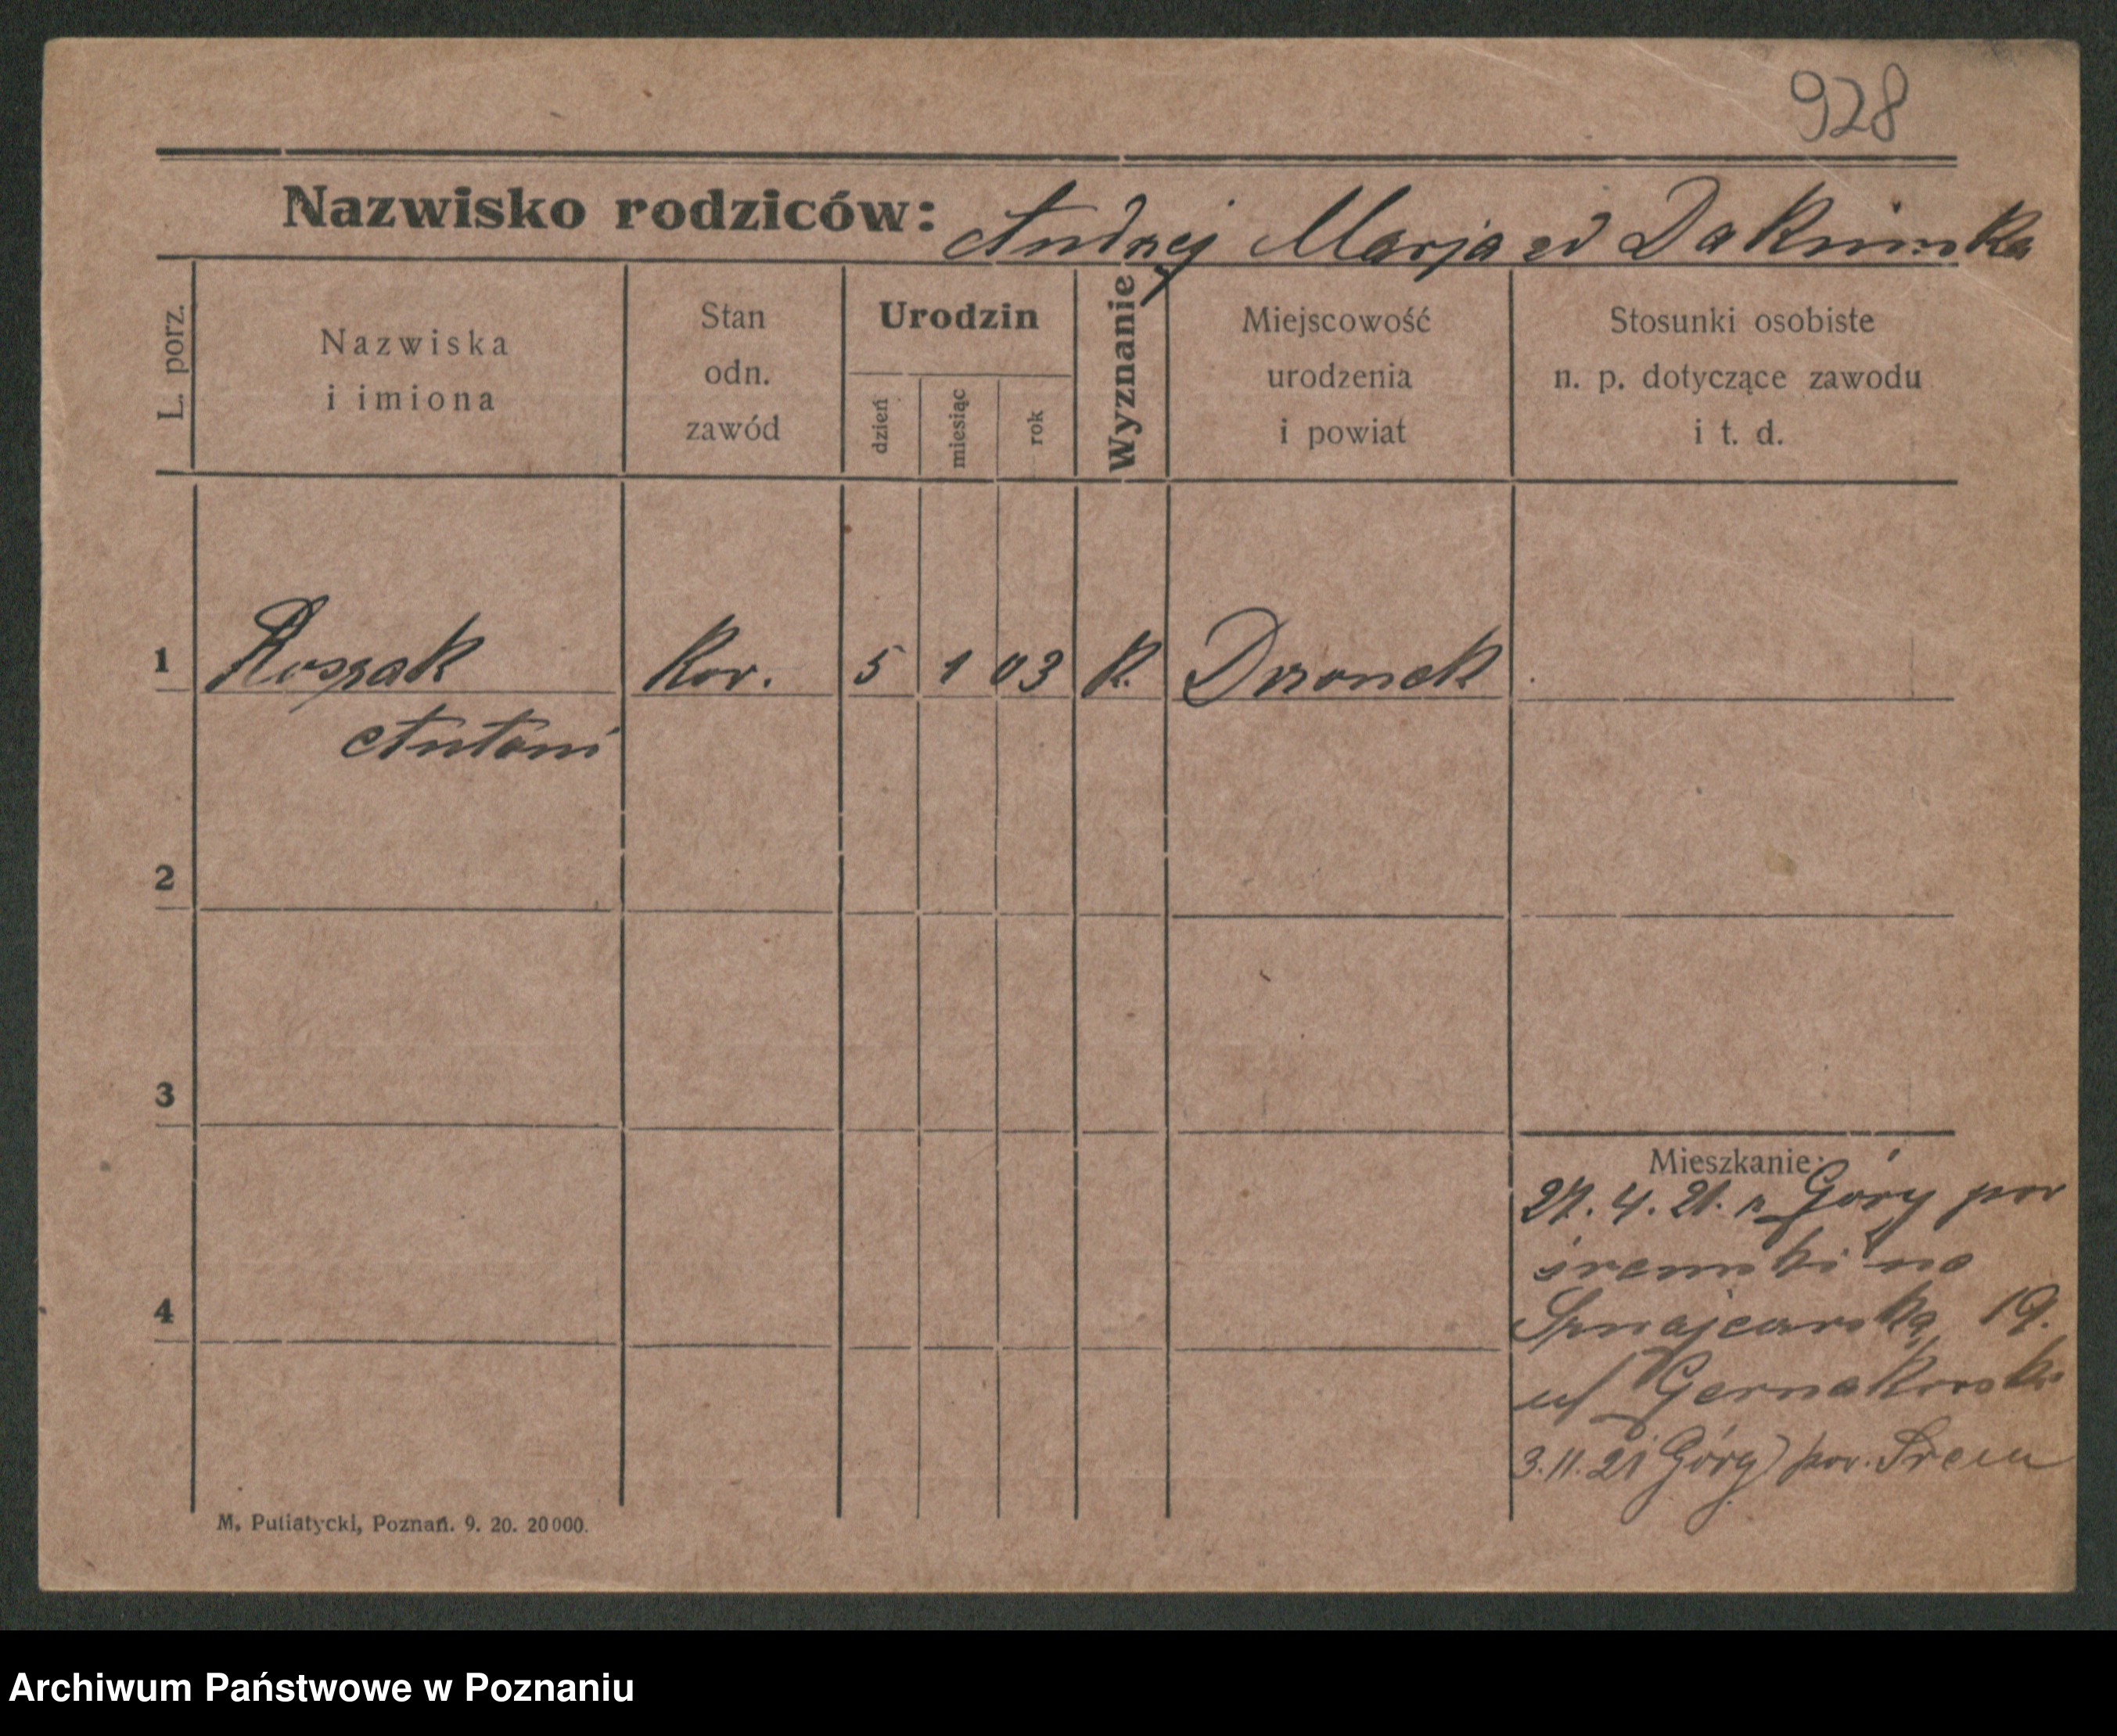 928
Nazwisko rodziców: Andrzej Marja zd
L. porz.
Nazwiska
i imiona
Stan
odn.
zawód
Urodzin
dzień
miesiąc
rok
Wyznanie
Miejscowość
urodzenia
i powiat
Stosunki osobiste
n. p. dotyczące zawodu
i t. d.
1 Roszak kow. 5 1 03 k. Dronek
Antoni
2
3
4
Mieszkanie:
27. 4. 21. z Góry pow
śremski na
19.
ul
3.11.21 Góry pow. Śrem
M. Putiatycki, Poznań. 9. 20. 20000.
Archiwum Państwowe w Poznaniu